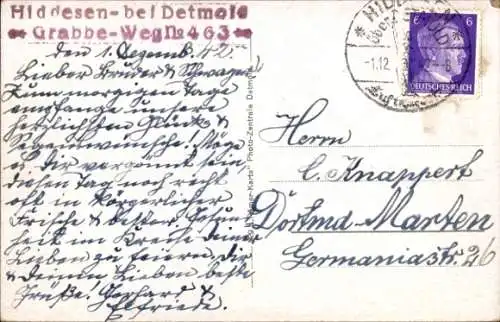 Hiddesen - bei Detmold
Grabbe-Weg № 463
den 1. Dezemb. 42.
Lieber Bruder & Schwager!
Zum morgigen Tage
empfange unsere
herzlichsten Glück- &
Segenswünsche! Möge
es Dir vergönnt sein
diesen Tag noch recht
oft in körgerlicher
Frische & bester Gesund-
heit im Kreise Deiner
Lieben zu feiern. Dir
& Deinen Lieben beste
Grüße! Gerhard &
Elfriede.
Karte" Photo-Zentrale Detmold
HIDDESEN
-1.12
6 6
DEUTSCHES REICH
Herrn
C. Knappert
Dortmd-Marten
Germaniastr. 26